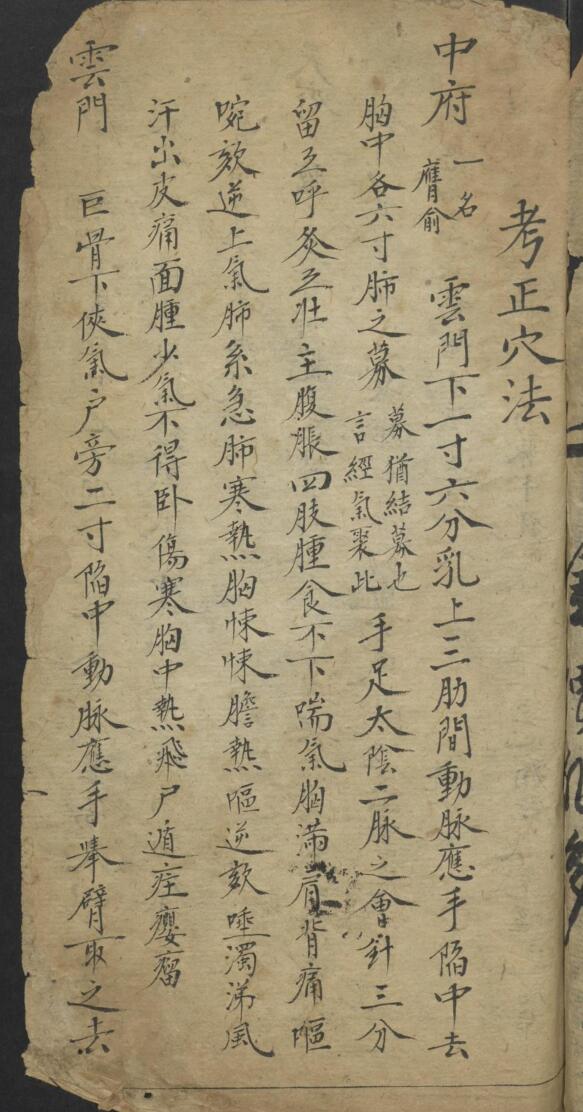 考正穴法
中府 一名膺俞 雲門下一寸六分乳上三肋間動脉應手陷中去
胸中各六寸肺之募 募猶結募也言經氣聚此 手足太陰二脉之會針三分
留五呼灸五壮主腹脹四肢腫食不下喘氣胸滿肩背痛嘔
啘欬逆上氣肺系急肺寒熱胸悚悚膽熱嘔逆欬唾濁涕風
汗出皮痛面腫少氣不得卧傷寒胸中熱飛尸遁疰癭瘤
雲門 巨骨下俠氣户旁二寸陷中動脉應手舉臂取之去